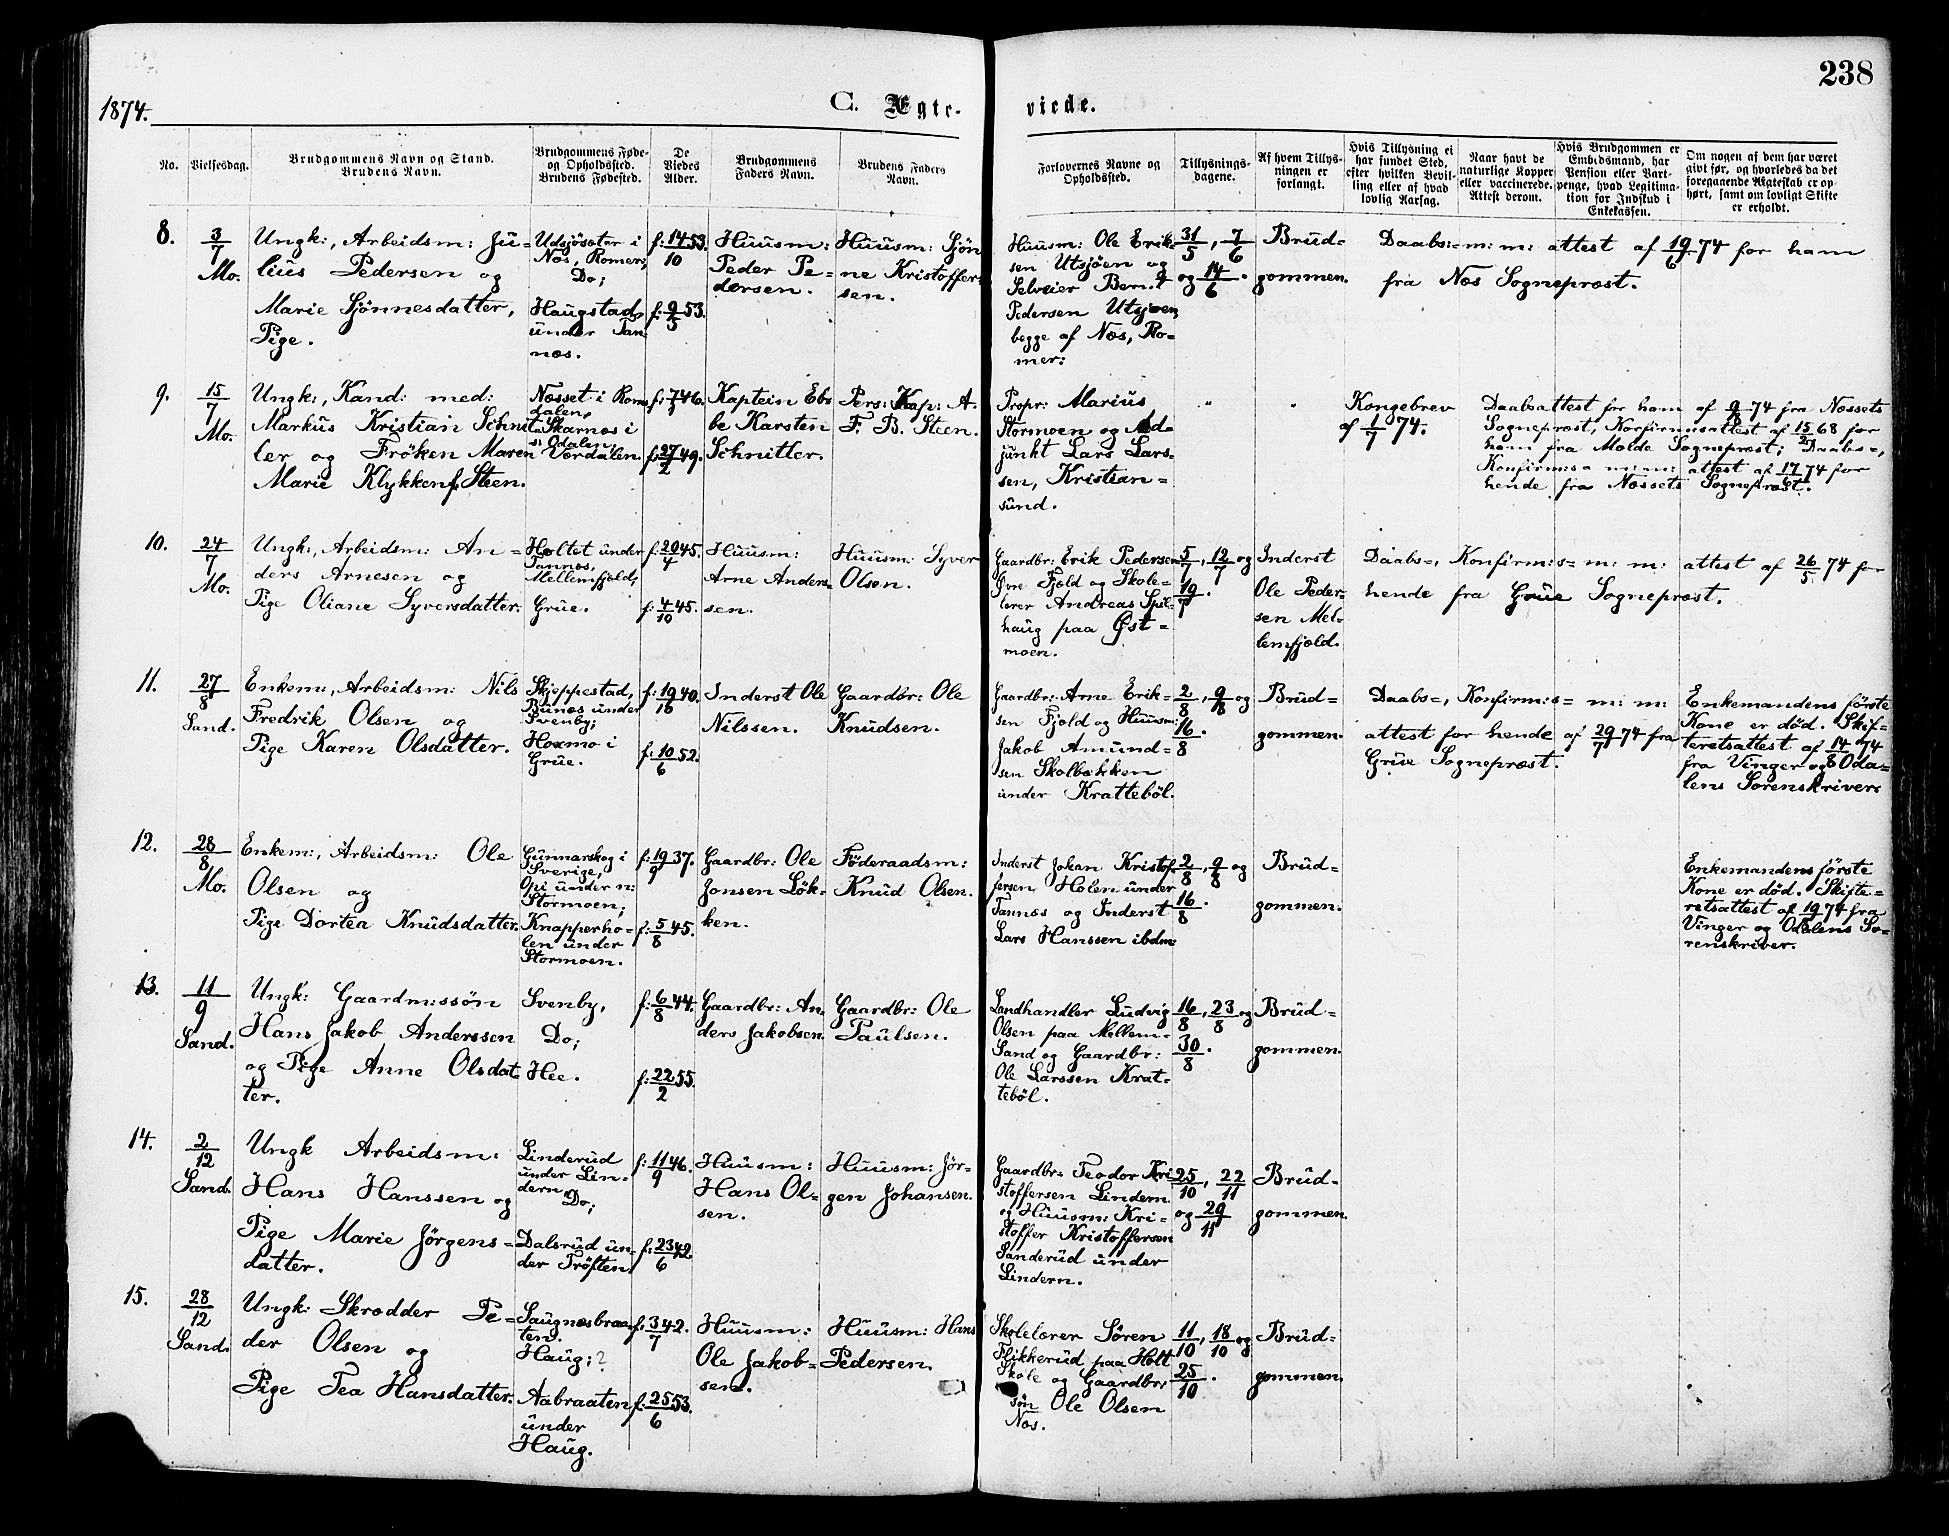 238
1874.
C. Ægte-
viede.
No.
Vielsesdag.
Brudgommens Navn og Stand.
Brudens Navn.
Brudgommens Føde-
og Opholdssted.
Brudens Fødested.
De
Viedes
Alder.
Brudgommens
Faders Navn.
Brudens Faders
Navn.
Forlovernes Navne og
Opholdssted.
Tillysnings-
dagene.
Af hvem Tillys-
ningen er
forlangt.
Hvis Tillysning ei
har fundet Sted,
efter hvilken Bevil-
ling eller af hvad
lovlig Aarsag.
Naar havt de
naturlige Kopper
eller vaccinerede.
Attest derom.
Hvis Brudgommen er
Embedsmand, har
Pension eller Vart-
penge, hvad Legitima-
tion for Indskud i
Enkekassen.
Om nogen af dem har været
givt før, og hvorledes da det
foregaaende Ægteskab er op-
hørt, samt om lovligt Skifte
er erholdt.
8.
3/7
Mo.
Ungk:, Arbeidsm: Ju-
lius Pedersen og
Marie Sjönnesdatter,
Pige.
Udsjösæter i
Næs, Romer;
Do;
Haugstad,
under Tan
næs.
f: 14/10 53.
f: 9/5 53.
Huusm:
Peder Pe-
dersen.
Huusm: Sjön
ne Kristoffer-
sen.
Huusm: Ole Erik
sen Utsjöen og
Selveier Bern.t
Pedersen Utsjöen,
begge af Næs, Ro-
mer:
31/5, 7/6
og 14/6.
Brud-
gommen.
Daabs:= m: m: attest af 19/6 74 for ham
fra Næs Sognepræst.
9.
15/7
Mo.
Ungk:, Kand: med:
Markus Kristian Schnit-
ler og Fröken Maren
Marie Klykken f. Steen.
Næsset i Roms
dalen,
Skarnæs i
s: Odalen,
Værdalen.
f: 7/3 46.
f: 27/2 49.
Kaptein Eb-
be Karsten
Schnitler.
Pers: Kap: A.
F. B. Steen.
Propr: Marius
Stormoen og Ad-
junkt Lars Lars-
sen, Kristian=
sund.
"
"
Kongebrev
af 1/7 74.
Daabsattest for ham af 9/6 74 fra Næssets
Sognepræst, Konfirmsattest af 15/2 68 for
ham fra Molde Sognepræst; Daabs=,
Konfirm:s= m:m: attest af 17/6 74 for
hende fra Næssets Sognepræst.
10.
24/7
Mo.
Ungk:, Arbeidsm: An=
ders Arnesen og
Pige Oliane Syversdatter.
Holtet under
Tannæs,
Mellemfjeld;
Grue.
f: 20/4 45.
f: 4/10 45.
Huusm:
Arne Anders-
sen.
Huusm: Syver
Olsen.
Gaardbr: Erik Pedersen
Øvre Fjeld og Skole-
lærer Andreas Spil-
haug paa Øst=
moen.
5/7, 12/7 og
19/7.
Inderst
Ole Peder-
sen Mel-
lemfjeld.
Daabs=, Konfirm:s= m: m: attest af 26/5 74 for
hende fra Grue Sognepræst.
11.
27/8
Sand.
Enkem:, Arbeidsm: Nils
Fredrik Olsen og
Pige Karen Olsdatter.
Skjeppestad,
Bunæs under
Svenby;
Hoxmo i
Grue.
f: 19/10 40.
f: 10/6 52.
Inderst Ole
Nilssen.
Gaardbr: Ole
Knudsen.
Gaardbr: Arne Erik-
sen Fjeld og Huusm:
Jakob Amund-
sen Skolbækken
under Kratteböl.
2/8, 9/8 og
16/8.
Brud-
gommen.
Daabs=, Konfirm:s= m: m:
attest for hende af 29/7 74 fra
Grue Sognepræst.
Enkemandens förste
Kone er död. Skif-
teretsattest af 14/8 74
fra Vinger og Oda-
lens Sorenskriver.
12.
28/8
Mo.
Enkem:, Arbeidsm: Ole
Olsen og
Pige Dortea Knudsdatter.
Gunnarskog i
Sverige,
Opi under n:
Stormoen;
Knapperho-
len under
Stormoen.
f: 19/9 37.
f: 5/8 45.
Gaardbr: Ole
Jonsen Lök-
ken.
Föderaadsm:
Knud Olsen.
Inderst Johan Kristof-
fersen Holen under
Tannæs og Inderst
Lars Hanssen ibdm:
2/8, 9/8 og
16/8.
Brud-
gommen.
Enkemandens förste
Kone er död. Skifte-
retsattest af 19/8 74 fra
Vinger og Odalens So-
renskriver.
13.
11/9
Sand.
Ungk: Gaardm:ssön
Hans Jakob Anderssen
og Pige Anne Olsdat-
ter.
Svenby,
Do;
Hee.
f: 6/8 44.
f: 22/2 55.
Gaardbr: An-
ders Jakobsen.
Gaardbr: Ole
Paulsen.
Landhandler Ludvig
Olsen paa Mellem-
Sand og Gaardbr:
Ole Larssen Krat-
teböl.
16/8, 23/8 og
30/8.
Brud-
gommen.
14.
2/12
Sand.
Ungk Arbeidsm:
Hans Hanssen og
Pige Marie Jörgens-
datter.
Linderud
under Lin-
dern,
Do;
Dalsrud un-
der Tröften.
f: 11/9 46.
f: 23/6 42.
Huusm:
Hans Ol-
sen.
Huusm: Jör-
gen Johansen.
Gaardbr: Teodor Kri
stoffersen Lindern
og Huusm: Kri-
stoffer Kristoffersen
Sanderud under
Lindern.
25/10, 22/11
og 29/11
Brud-
gommen.
15.
28/12
Sand.
Ungk: Skrædder Pe-
der Olsen og
Pige Tea Hansdatter.
Saugnæsbraa-
ten.
Haug;?
Aabraaten
under
Haug.
f: 3/7 42.
f: 25/6 53.
Huusm:
Ole Jakob-
sen.
Huusm: Hans
Pedersen.
Skolelærer Sören
Flikkerud paa Holt
Skole og Gaardbr:
sön Ole Olsen
Næs.
11/10, 18/10 og
25/10.
Brud-
gommen.